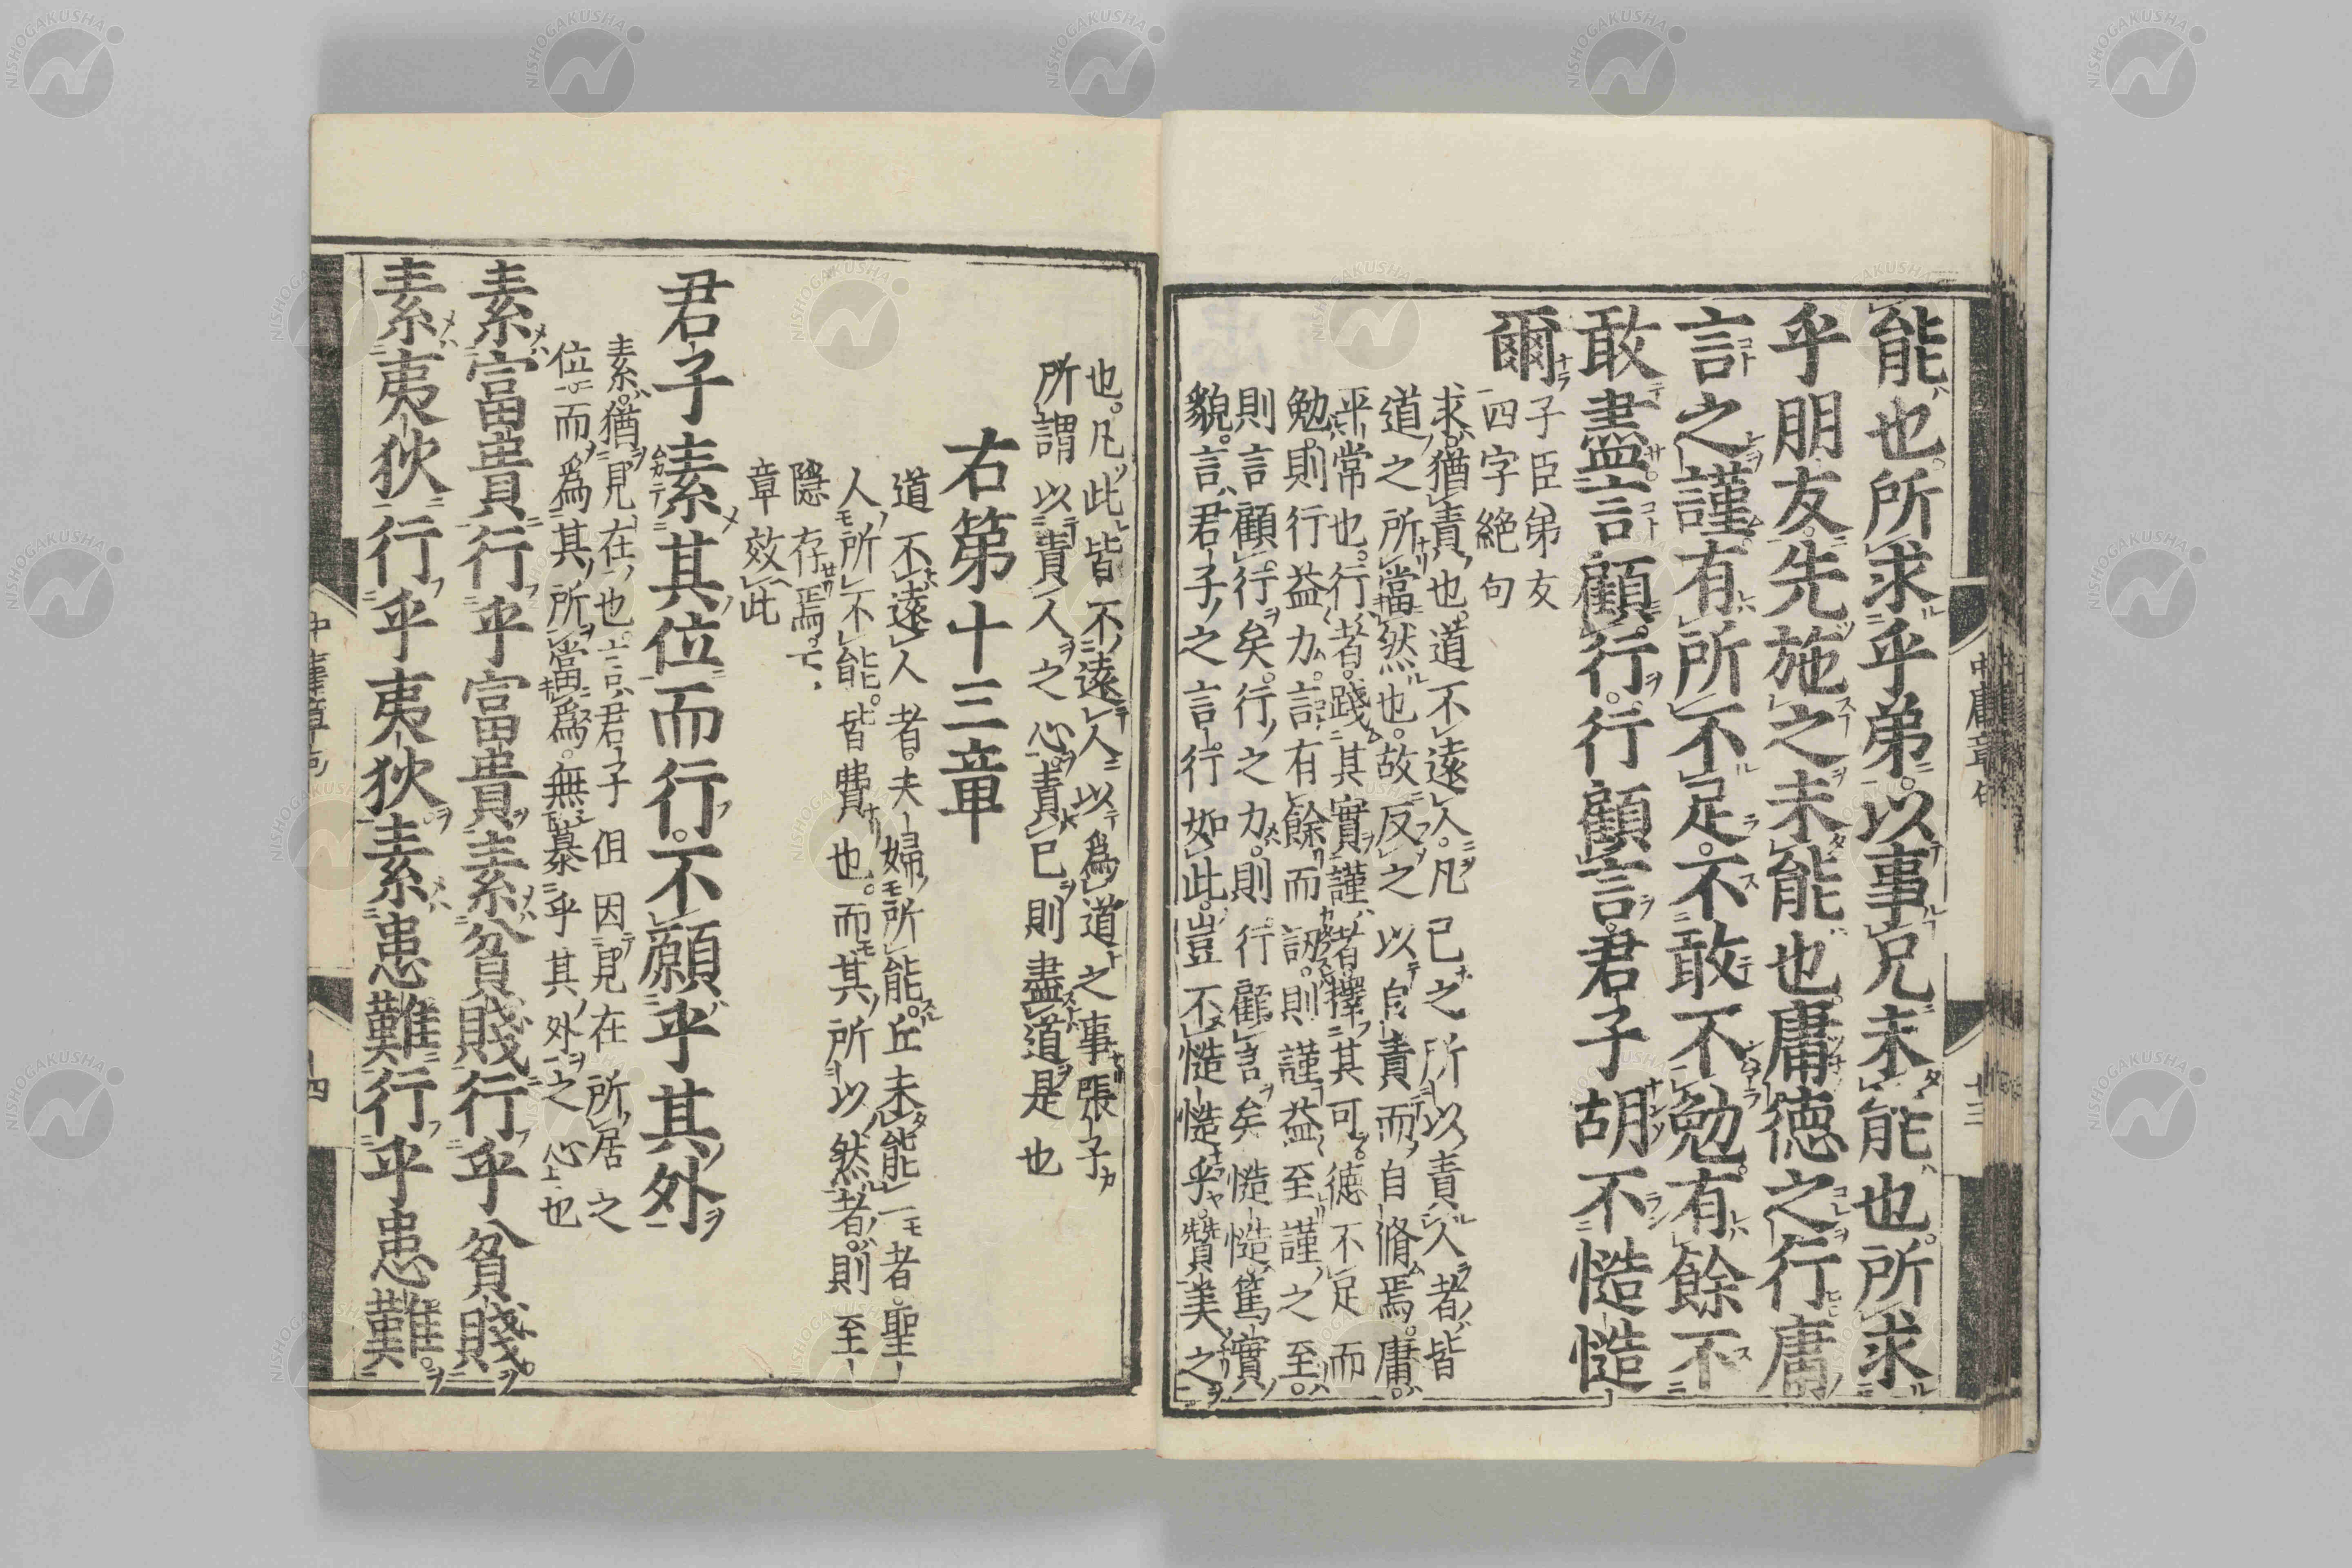 能也所求乎弟以事兄未能也所求
乎朋友先施之未能也庸德之行庸
言之謹有所不足不敢不勉有餘不
敢盡言顧行行顧言君子胡不慥慥
爾
子臣弟友
四字絶句
求猶責也道不遠人凡己之所以責人者皆
道之所當然也故反之以自責而自脩焉庸
平常也行者踐其實謹者擇其可德不足而
勉則行益力言有餘而訒則謹益至謹之至
則言顧行矣行之力則行顧言矣慥慥篤實
貌言君子之言行如此豈不慥慥乎贊美之
也凡此皆不遠人以爲道之事張子
所謂以責人之心責己則盡道是也
右第十三章
道不遠人者夫婦所能丘未能一者聖
人所不能皆費也而其所以然者則至
隱存焉下
章效此
君子素其位而行不願乎其外
素猶見在也言君子但因見在所居之
位而爲其所當爲無慕乎其外之心也
素富貴行乎富貴素貧賤行乎貧賤
素夷狄行乎夷狄素患難行乎患難
中庸章句
十三
中庸章句
十四
NISHOGAKUSHA